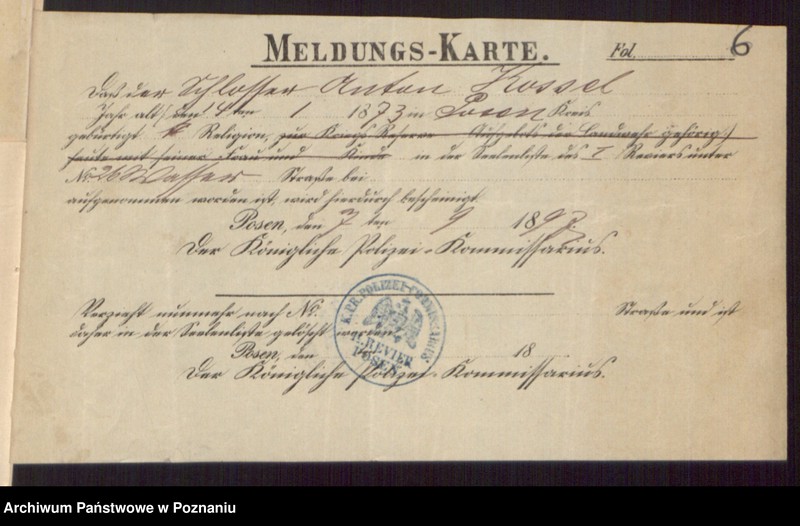 MELDUNGS-KARTE.
Fol. 6
Daß der Schlosser Anton Kossel
Jahr alt / den 4ten 1 1873 in Posen Kreis
gebürtigt Religion, zur Kriegs-Reserve Aufgebots der Landwehr gehörig,
heute mit seiner Frau und Kinder in der Seelenliste des I Reviers unter
No. 26 Wasser Straße bei
aufgenommen worden ist, wird hierdurch bescheinigt.
Posen, den 7 ten 9 189
Der Königliche Polizei-Kommissarius.
K. PR. POLIZEI-COMMISSARIUS
II. REVIER
POSEN
Verzieht nunmehr nach No. Straße und ist
daher in der Seelenliste gelöscht worden.
Posen, den 18
Der Königliche Polizei-Kommissarius.
Archiwum Państwowe w Poznaniu